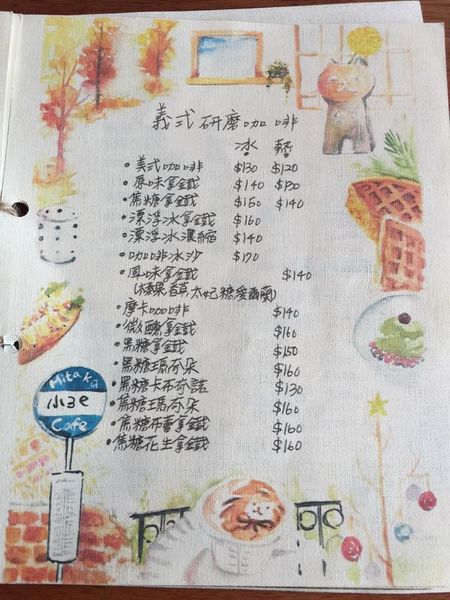 義式研磨咖啡
冰 熱
•美式咖啡 $130 $120
•原味拿鐵 $140 $130
•焦糖拿鐵 $150 $140
•漂浮冰拿鐵 $160
•漂浮冰濃縮 $140
•咖啡冰沙 $170
•風味拿鐵 $140
(榛果 香草 太妃糖 愛爾蘭)
•摩卡咖啡 $140
•微醺拿鐵 $160
•黑糖拿鐵 $150
•黑糖瑪奇朵 $160
•黑糖卡布奇諾 $130
•焦糖瑪奇朵 $160
•焦糖布蕾拿鐵 $160
•焦糖花生拿鐵 $160
Mitaka
小3e
Cafe